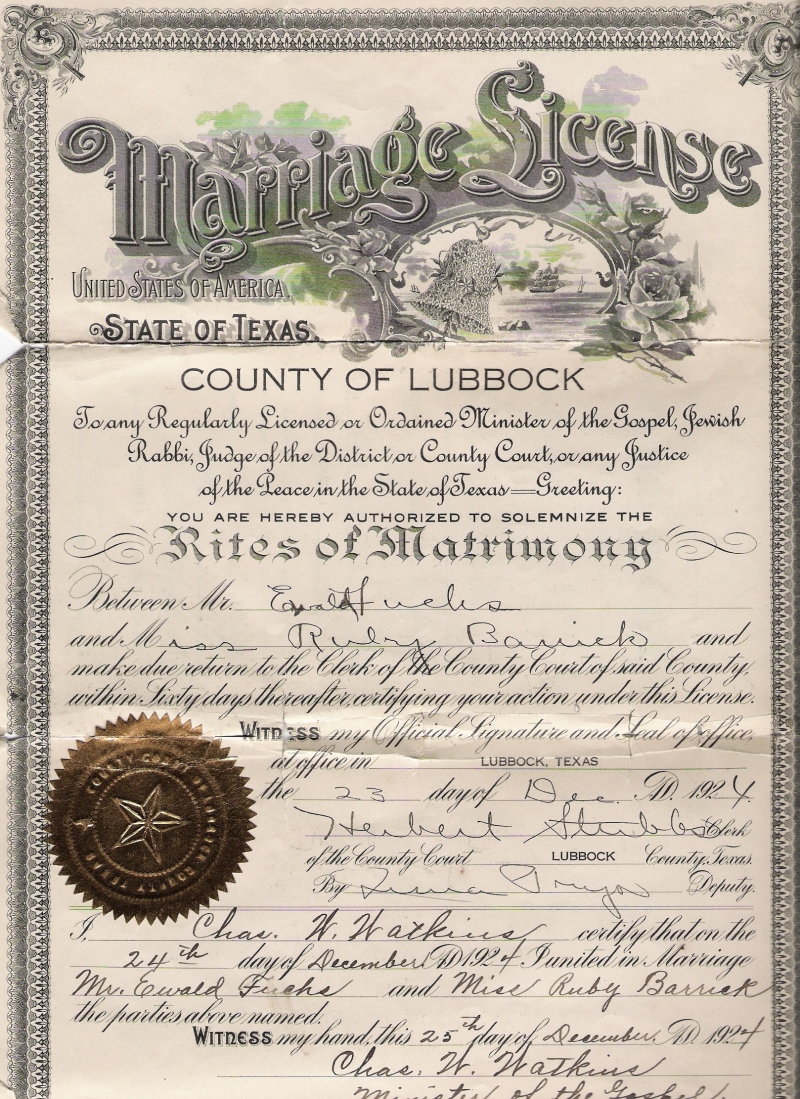 Marriage License
UNITED STATES OF AMERICA.
STATE OF TEXAS.
COUNTY OF LUBBOCK
To any Regularly Licensed or Ordained Minister of the Gospel, Jewish
Rabbi, Judge of the District or County Court, or any Justice
of the Peace in the State of Texas—Greeting:
YOU ARE HEREBY AUTHORIZED TO SOLEMNIZE THE
Rites of Matrimony
Between Mr. Ewald Fuchs
and Miss Ruby Barrick and
make due return to the Clerk of the County Court of said County,
within Sixty days thereafter, certifying your action under this License.
WITNESS my Official Signature and Seal of office,
at office in LUBBOCK, TEXAS
the 23 day of Dec. A.D. 1924
Herbert Stubbs Clerk
of the County Court LUBBOCK County, Texas.
By Deputy.
I, Chas. W. Watkins certify that on the
24th day of December A.D. 1924 I united in Marriage
Mr. Ewald Fuchs and Miss Ruby Barrick
the parties above named.
WITNESS my hand, this 25th day of December A.D. 1924
Chas. W. Watkins
Minister of the Gospel